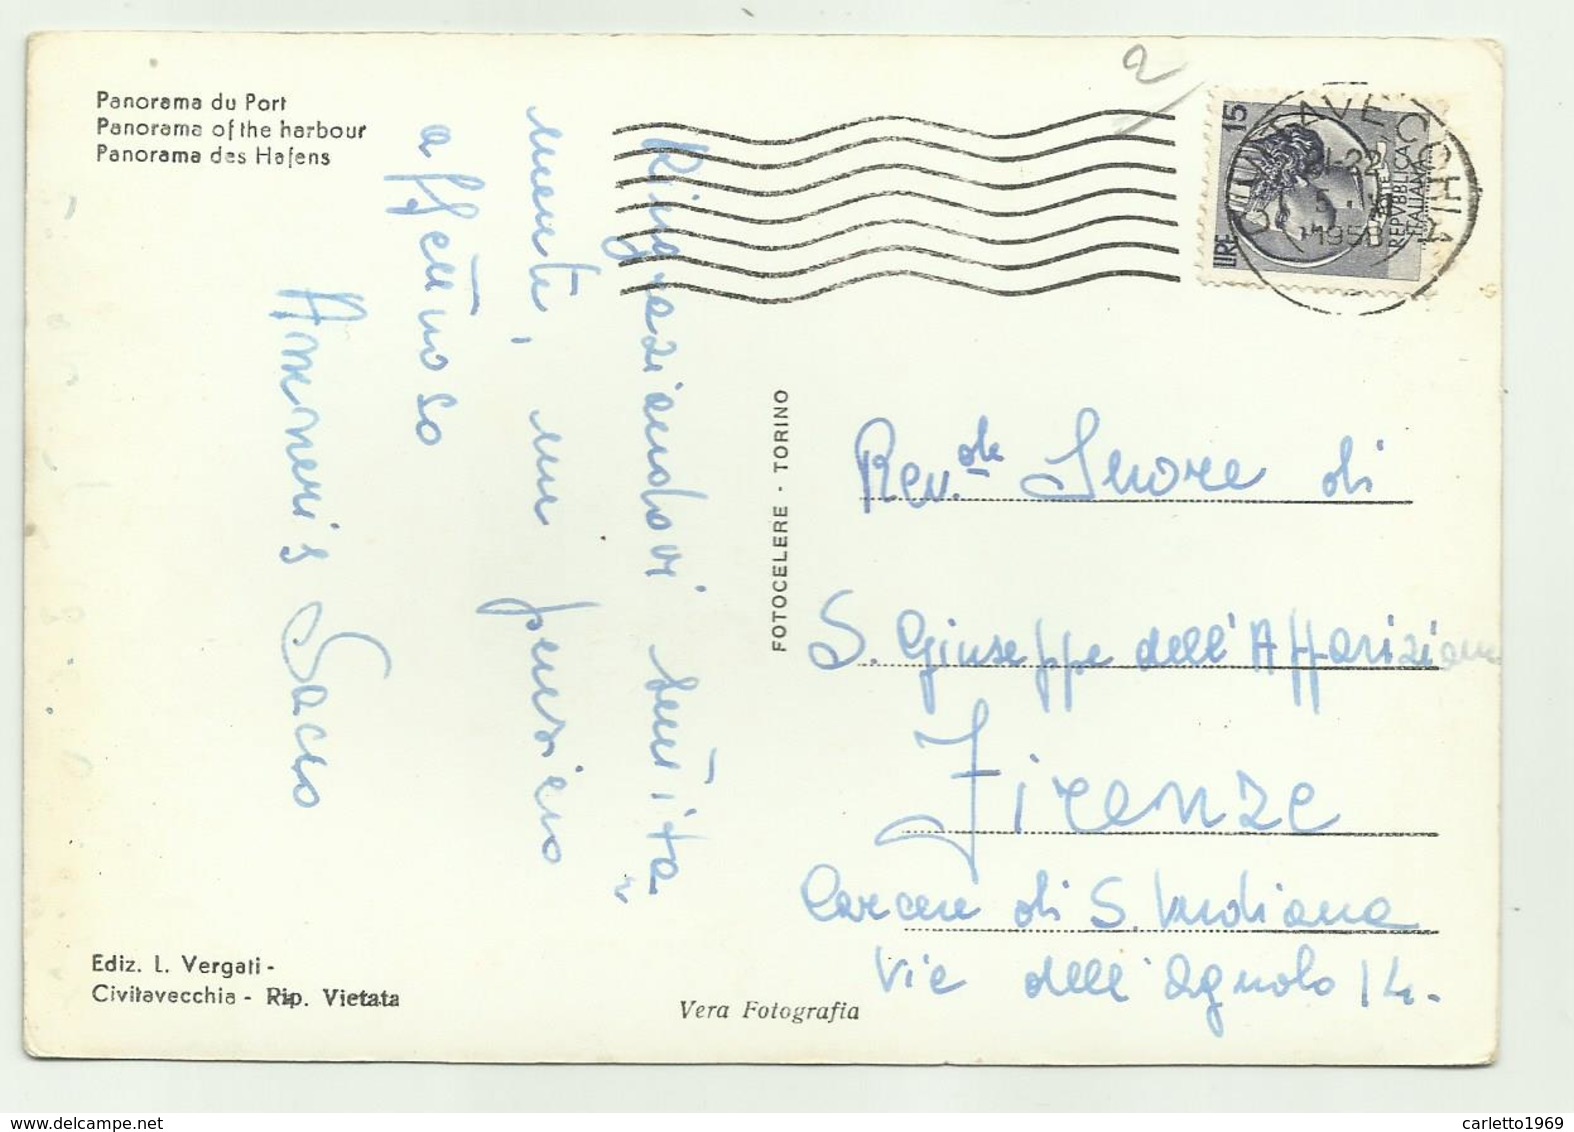 Panorama du Port
Panorama of the harbour
Panorama des Hafens
Ringraziandovi
mente, un pensiero
affettuoso
Amneris Sacco
Ediz. L. Vergati -
Civitavecchia - Rip. Vietata
FOTOCELERE - TORINO
Vera Fotografia
2
CIVITAVECCHIA
21-22
1958
LIRE 15
POSTE
REPVBBLICA
ITALIANA
Rev.de Suore di
S. Giuseppe dell'Apparizione
Firenze
Carcere di S. Verdiana
Via dell'Agnolo 14.
delcampe.net
carletto1969